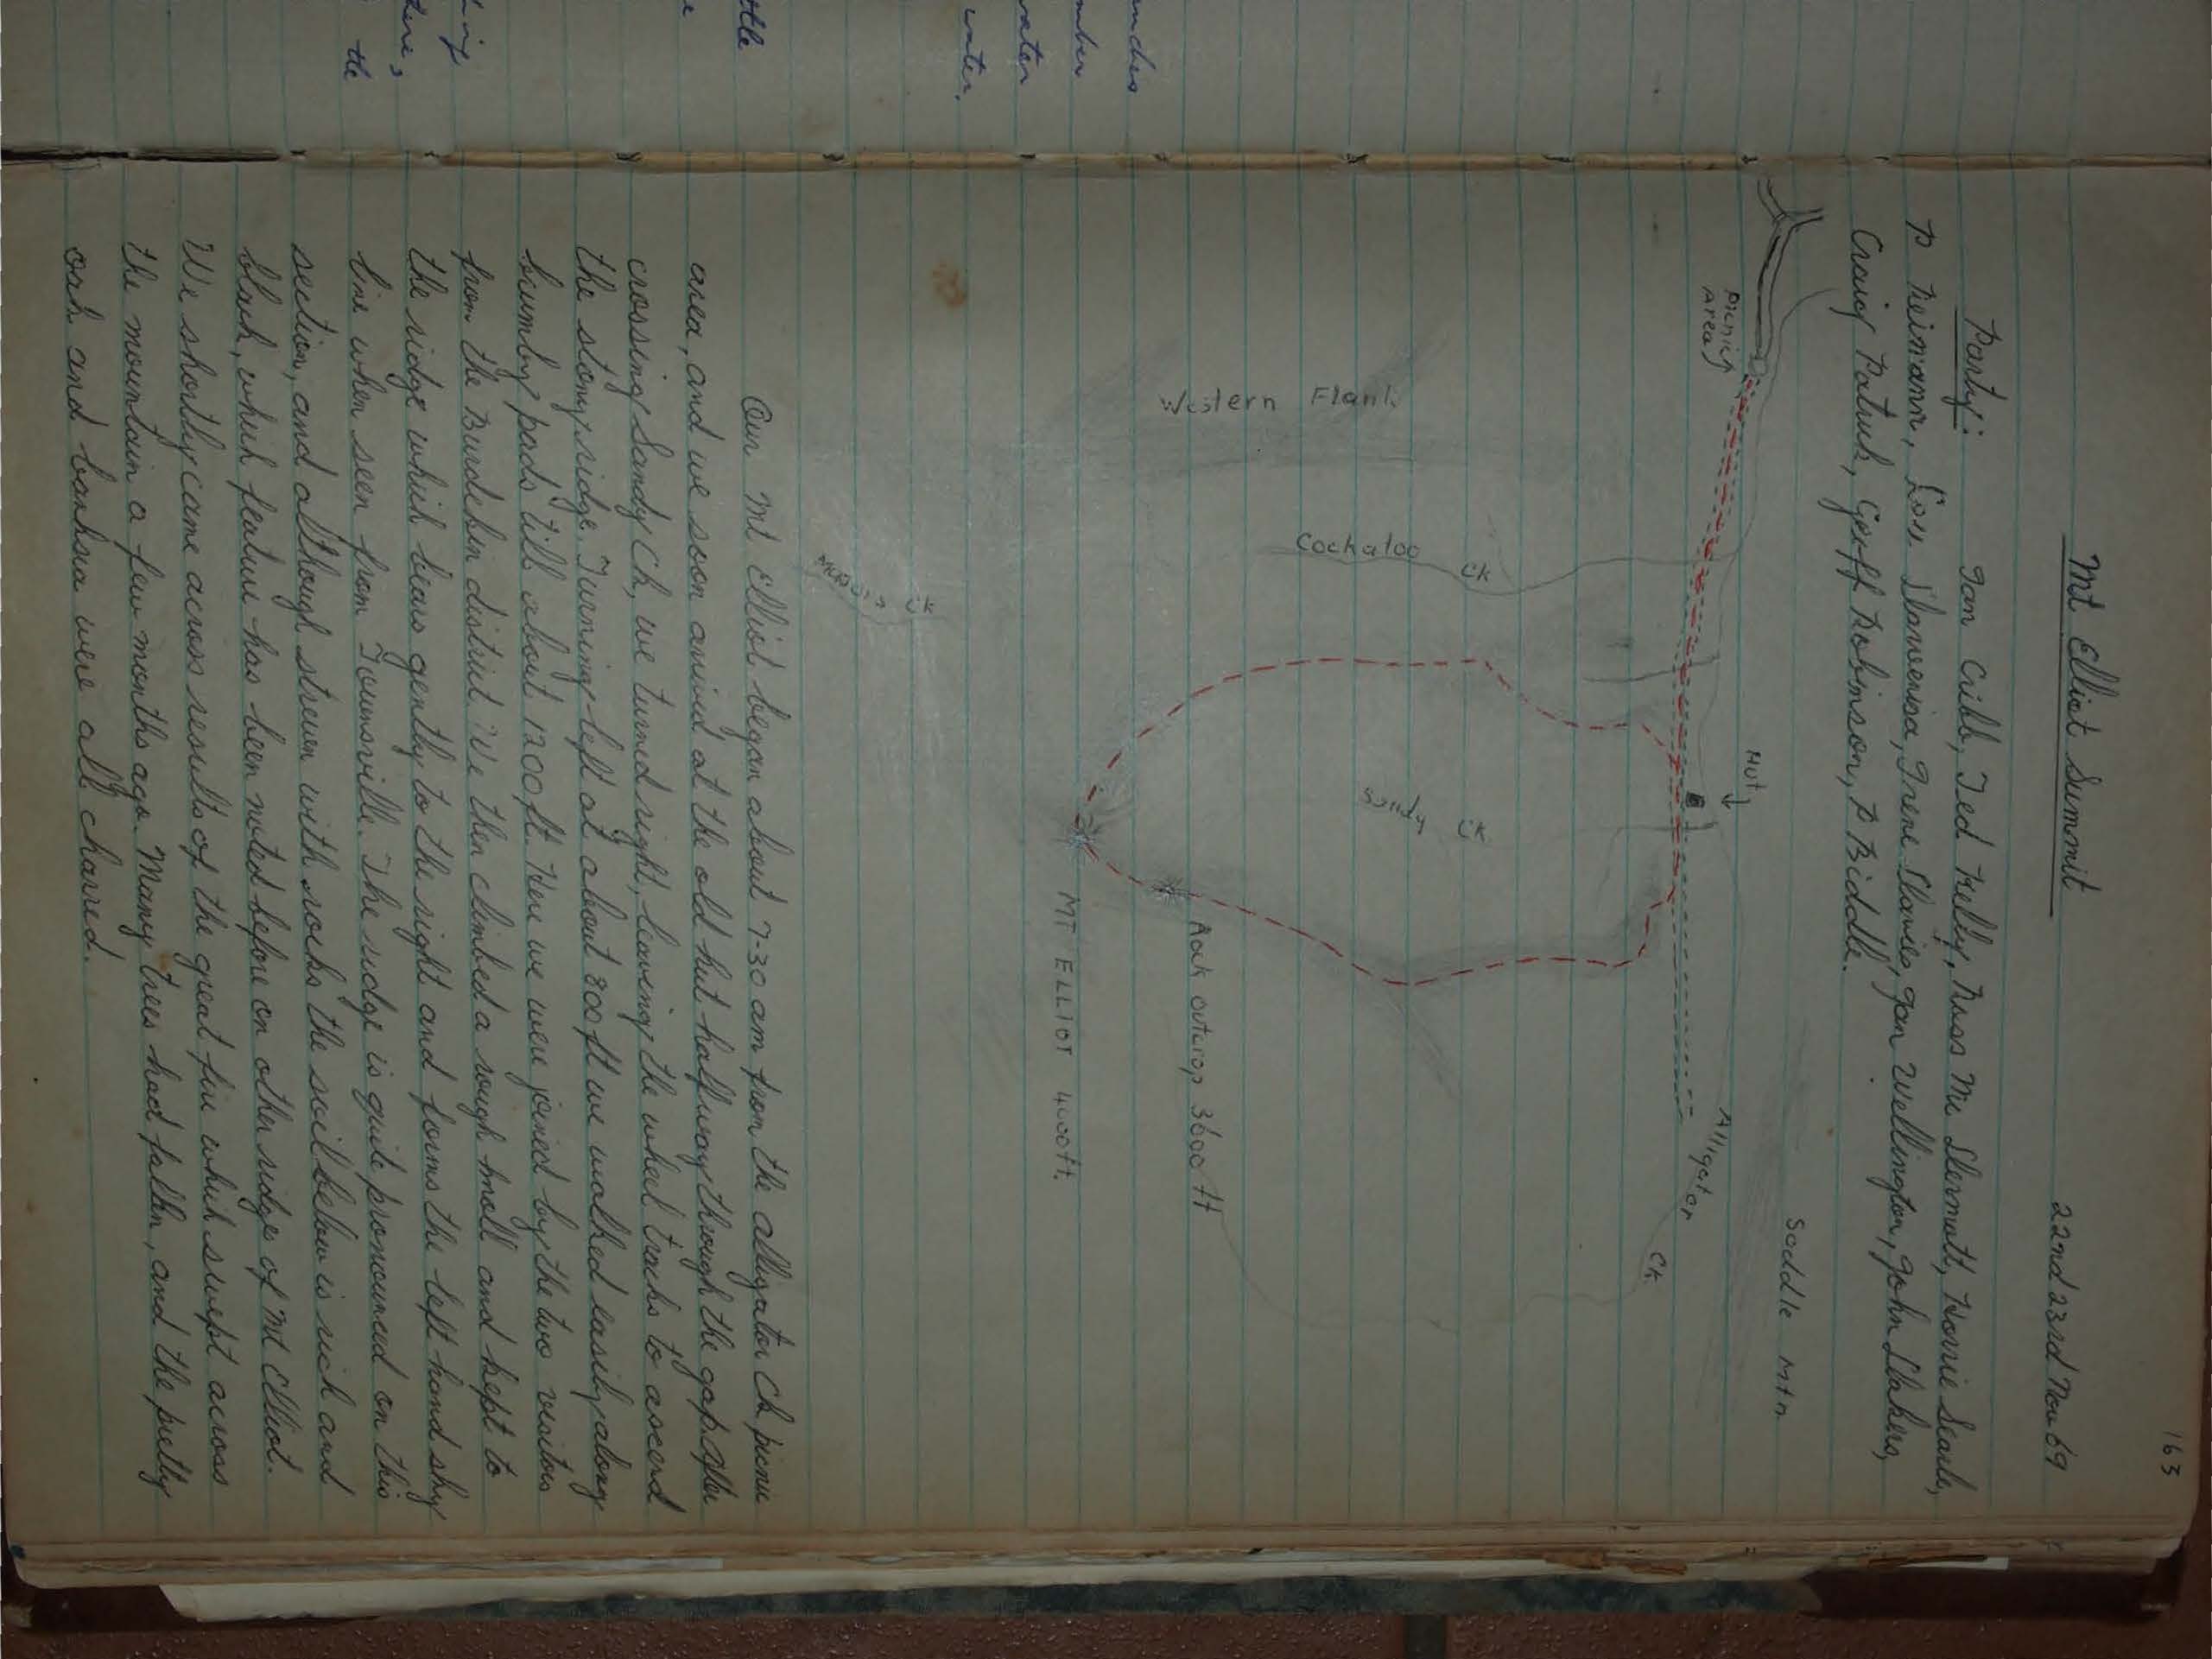 163
Mt Elliot Summit
22nd 23rd Nov 69
Party: Ian Cribb, Ted Kelly, Ross Mc Dermott, Horrie Searle,
R Reimann, Los Slawevisa, Irene Slavies, Jan Wellington, John Dakers,
Craig Patush, Geoff Robinson, R Biddle.
Saddle Mtn
Picnic Area
Hut
Alligator Ck
Cockatoo Ck
Sandy Ck
Western Flank
Rock outcrop 3600 ft
MT ELLIOT 4000ft.
Ck
Our Mt Elliot began about 7-30 am from the Alligator Ck picnic
area, and we soon arrived at the old hut halfway through the gap. After
crossing Sandy Ck, we turned right, leaving the wheel tracks to ascend
the stony ridge. Turning left at about 800 ft we walked easily along
brumby pads till about 1200 ft. Here we were joined by the two visitors
from the Burdekin district. We then climbed a rough knoll and kept to
the ridge which bears gently to the right and forms the left hand sky
line when seen from Townsville. The ridge is quite pronounced on this
section, and although strewn with rocks the soil below is rich and
black, which feature has been noted before on other ridges of Mt Elliot.
We shortly came across results of the great fire which swept across
the mountain a few months ago. Many trees had fallen, and the pretty
oak and banksia were all charred.
anches
mber
water
water,
ttle
e
the